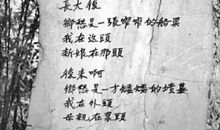 長大後
鄉愁是一張窄窄的船票
我在這頭
新娘在那頭
後來啊
鄉愁是一方矮矮的墳墓
我在外頭
母親在裏頭